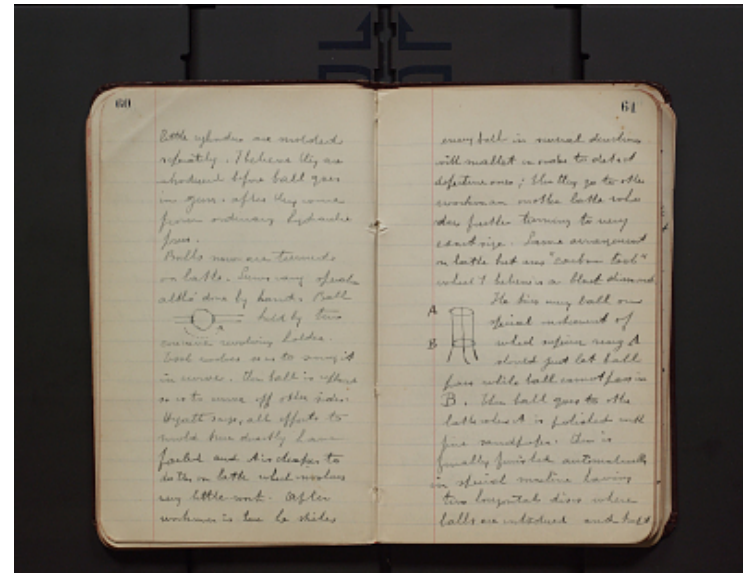 60
little cylinders are molded
separately. I believe they are
introduced before ball goes
in gun. after they come
from ordinary hydraulic
press.
Balls now are turned
on lathe. Seems very
altho' done by hand. Ball
held by two
concave revolving holder.
Tool revolves so as to swing it
in curve. Then ball is
so as to curve off other side.
Hyatt says, all efforts to
mold true directly have
failed and tis cheaper to
do this on lathe which involves
very little work. After
workman is true he strikes
61
every ball in several directions
with mallet in order to detect
defective ones; then they go to other
workman on other lathe who
does further turning to very
exact size. Same arrangement
on lathe but uses "carbon tool"
which I believe is a black diamond
He tries every ball on
A
special instrument of
B
which superior ring A
should just let ball
pass while ball cannot pass in
B. Then ball goes to other
lathe where it is polished with
fine sandpaper. Then is
finally finished automatically
in special machine having
two horizontal discs where
balls are introduced and kept